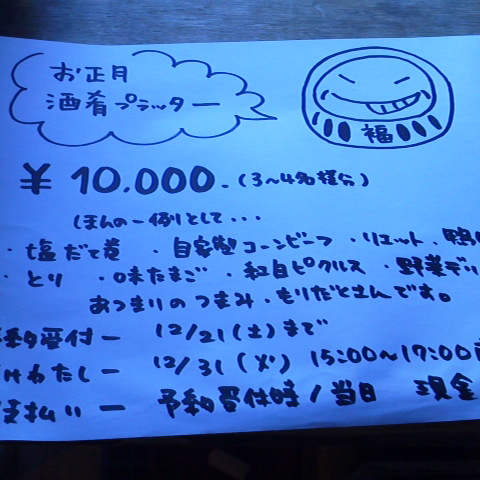 お正月
酒肴プラッター
福
¥10.000.-(3〜4名様分)
ほんの一例として・・・
・塩だて巻 ・自家製コーンビーフ ・リエット ・鴨
・とり ・味たまご ・紅白ピクルス ・野菜デリ
おつまりのつまみ・もりだとさんです。
予約受付ー 12/21(土)まで
けわたしー 12/31(火) 15:00〜17:00
支払いー 予約受付時/当日 現金